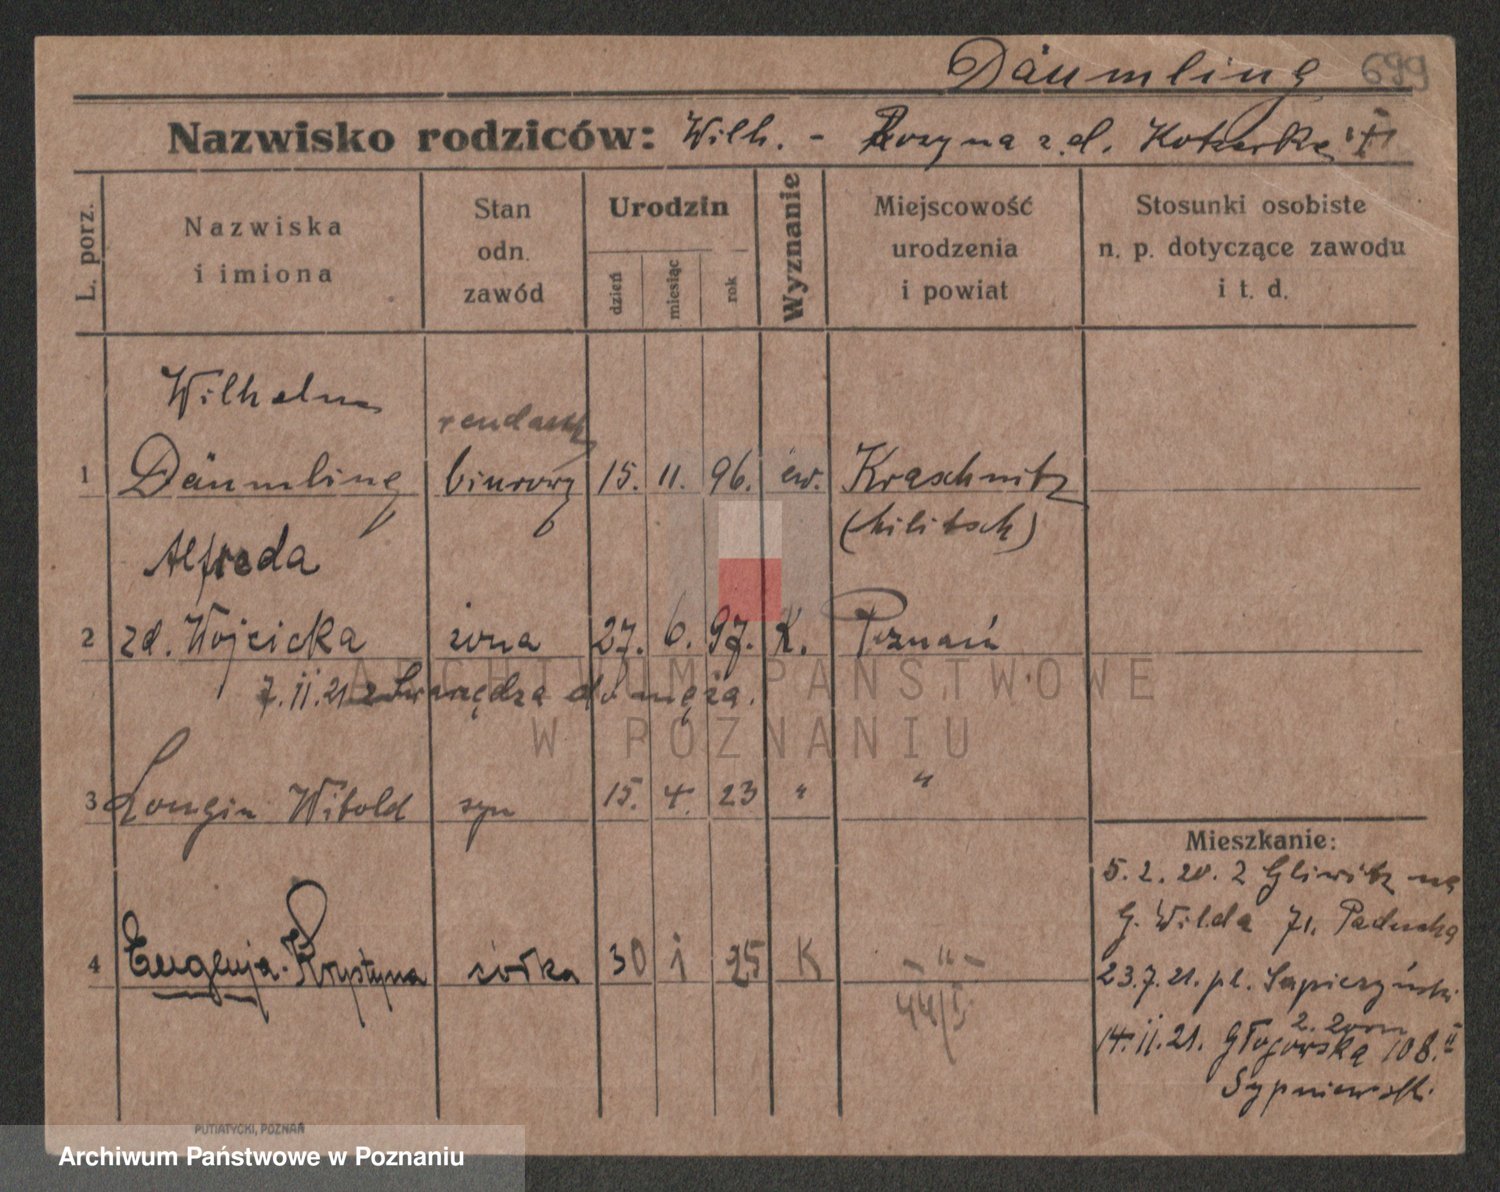 Däumling 699
Nazwisko rodziców: Wilh. - Rozyna z d.
L. porz.
Nazwiska i imiona
Stan odn. zawód
Urodzin
dzień miesiąc rok
Wyznanie
Miejscowość urodzenia i powiat
Stosunki osobiste n. p. dotyczące zawodu i t. d.
Wilhelm
1 Däumling biurowy 15. 11. 96. ew. Kraschnitz
(Militsch)
Alfreda
2 zd. Wojcicka żona 27. 6. 97. K. Poznań
7.11.21 z Swarzędza do męża.
3 Longin Witold syn 15. 4. 23 " "
4 Eugenja-Krystyna córka 30 1 25 K - " -
44/I
Mieszkanie:
5. 2. 20. z Gliwitz na
G. Wilda 71.
23.7.21. pl. Sapieżyński
z żoną
14.11.21. Głogowska 108.II
Sypniewski
PUTIATYCKI, POZNAŃ
ARCHIWUM PAŃSTWOWE
W POZNANIU
Archiwum Państwowe w Poznaniu